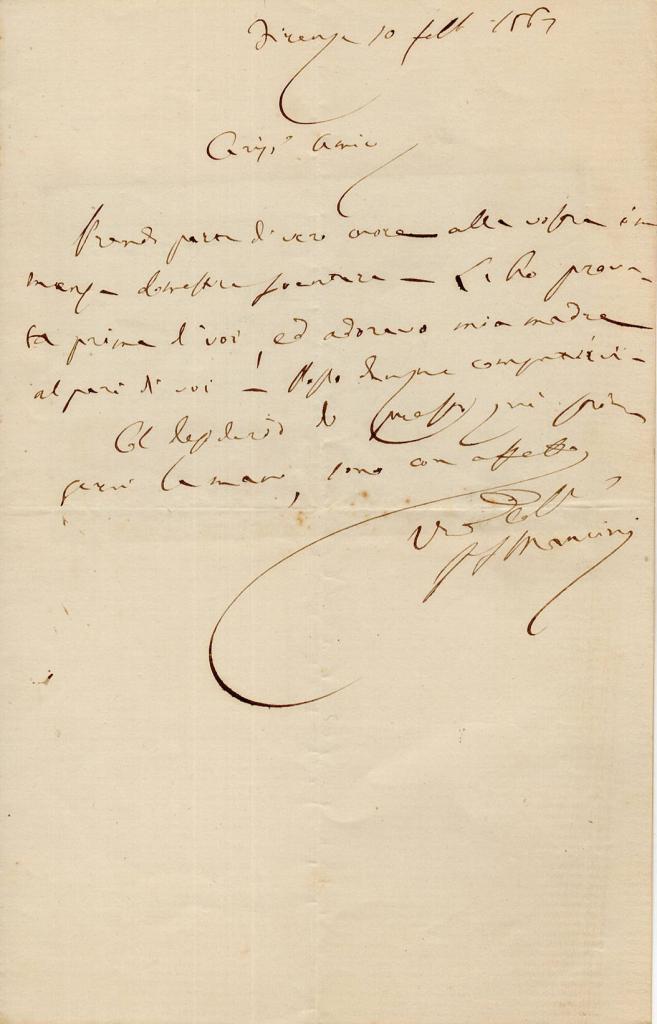 Firenze 10 febb. 1867
Cariss.º Amico
Prendo parte di vero cuore alla vostra im
mensa domestica sventura – L'ho prova-
ta prima di voi, ed adoravo mia madre
al pari di voi – Posso dunque compatirvi –
Col desiderio di presto qui strin
gervi la mano, sono con affetto
Mancini